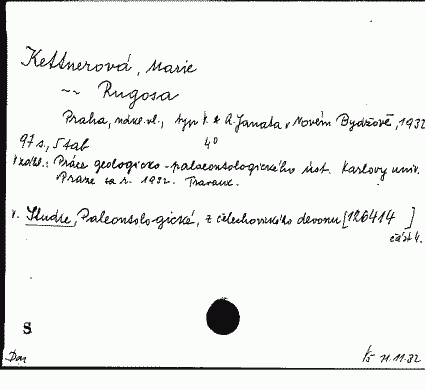 Kettnerová, Marie
~~ Rugosa
Praha, nákl. vl., typ K. & A. Janata v Novém Bydžově, 1932
97 s., 5 tab 4°
Práce geologicko-palaeontologického úst. Karlovy univ.
Praze za r. 1932. Travaux.
v. Studie, Paleontolo-gické, z čelechovského devonu [126414]
část 4.
S
Dar 21.11.32